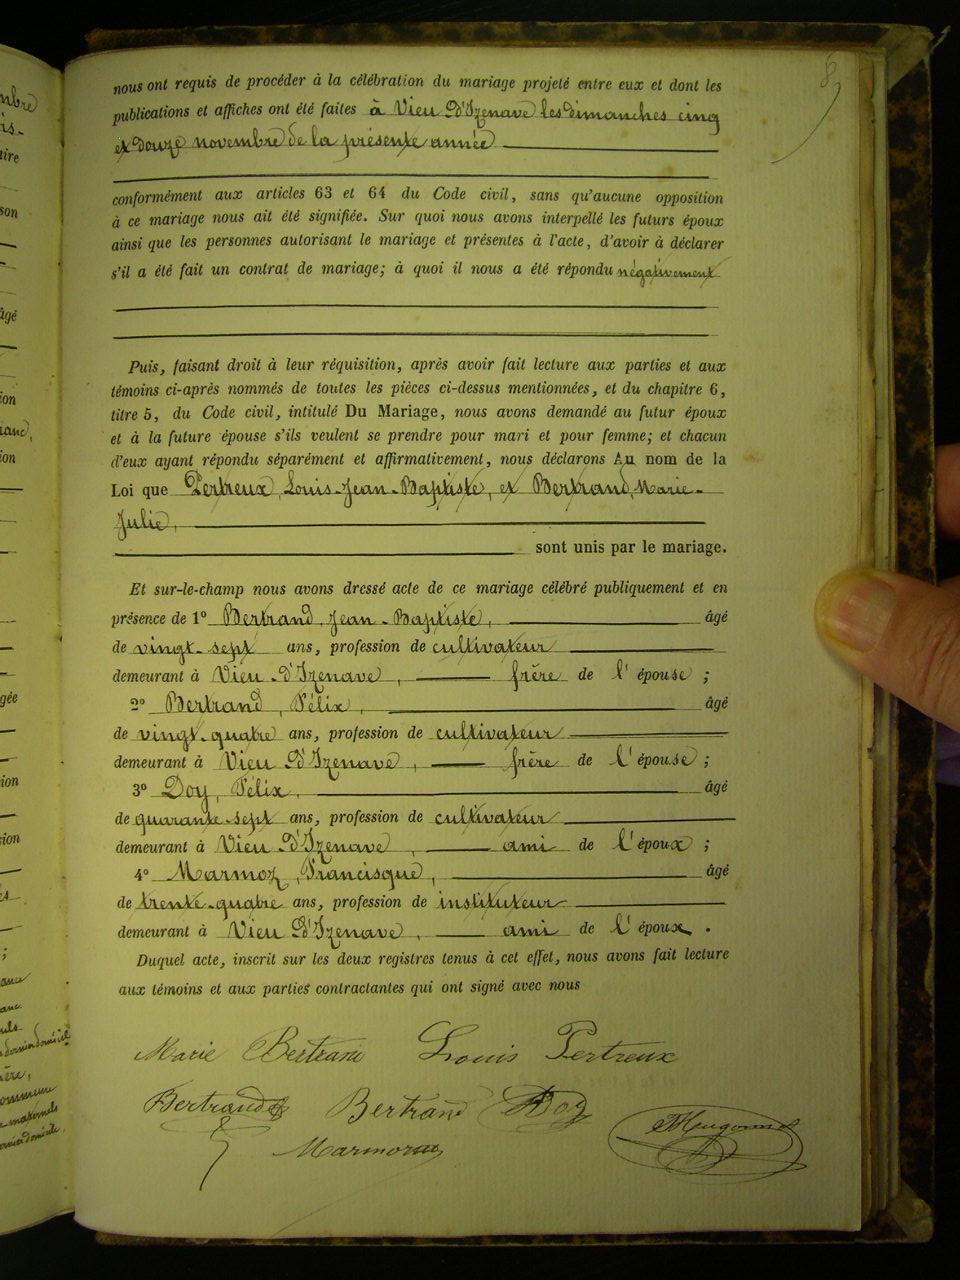 8
nous ont requis de procéder à la célébration du mariage projeté entre eux et dont les
publications et affiches ont été faites à Vieu d'Izenave les dimanches cinq
et douze novembre de la présente année
conformément aux articles 63 et 64 du Code civil, sans qu'aucune opposition
à ce mariage nous ait été signifiée. Sur quoi nous avons interpellé les futurs époux
ainsi que les personnes autorisant le mariage et présentes à l'acte, d'avoir à déclarer
s'il a été fait un contrat de mariage; à quoi il nous a été répondu négativement
Puis, faisant droit à leur réquisition, après avoir fait lecture aux parties et aux
témoins ci-après nommés de toutes les pièces ci-dessus mentionnées, et du chapitre 6,
titre 5, du Code civil, intitulé Du Mariage, nous avons demandé au futur époux
et à la future épouse s'ils veulent se prendre pour mari et pour femme; et chacun
d'eux ayant répondu séparément et affirmativement, nous déclarons Au nom de la
Loi que Pertreux, Louis-Jean-Baptiste, et Bertrand, Marie-
Julie,
sont unis par le mariage.
Et sur-le-champ nous avons dressé acte de ce mariage célébré publiquement et en
présence de 1º Bertrand, Jean-Baptiste, âgé
de vingt-sept ans, profession de cultivateur
demeurant à Vieu d'Izenave, frère de l'épouse;
2º Bertrand, Félix, âgé
de vingt-quatre ans, profession de cultivateur
demeurant à Vieu d'Izenave, frère de l'épouse;
3º Doy, Félix, âgé
de quarante-sept ans, profession de cultivateur
demeurant à Vieu d'Izenave, ami de l'époux;
4º Marmoz, Francisque, âgé
de trente-quatre ans, profession de instituteur
demeurant à Vieu d'Izenave, ami de l'époux.
Duquel acte, inscrit sur les deux registres tenus à cet effet, nous avons fait lecture
aux témoins et aux parties contractantes qui ont signé avec nous
Marie Bertrand Louis Pertreux
Bertrand Bertrand Doy